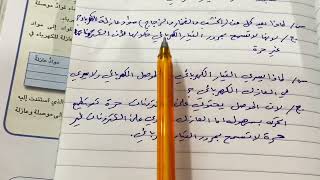 س/ لماذا يعد كل من (الخشب والفخار والزجاج) مواد عازلة للكهرباء؟
ج/ لأنها لا تسمح بمرور التيار الكهربائي خلالها لأن الكتروناتها
غير حرة
س/ لماذا يسري التيار الكهربائي في الموصل الكهربائي ولا يسري
في العازل الكهربائي؟
ج/ لأن الموصل يحتوي على الكترونات حرة تستطيع
الحركة بسهولة اما العازل يحتوي على الكترونات غير
حرة لا تسمح بمرور التيار الكهربائي.
مواد عازلة